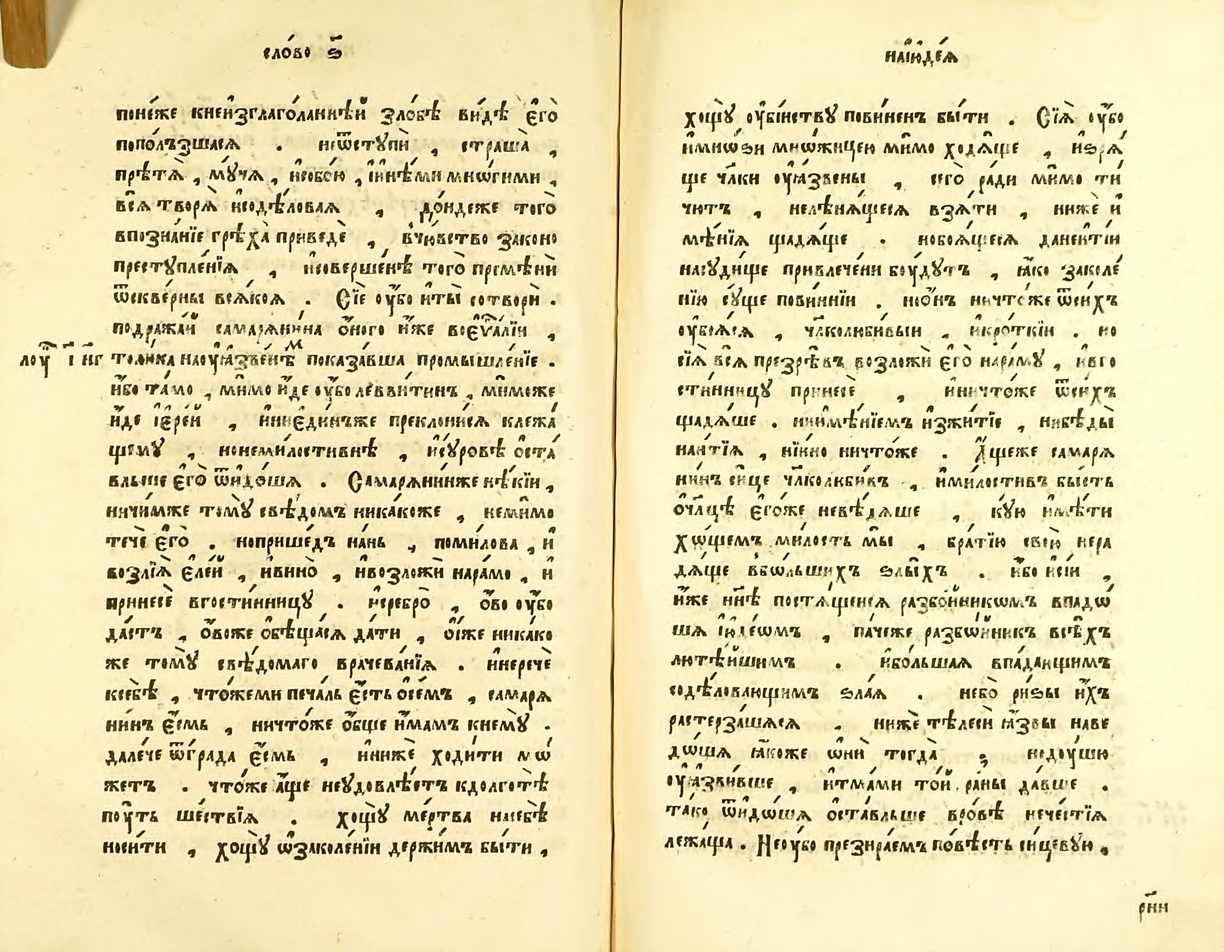 сло́во ѕ҃
поне́же кнеи҆зглаго́ланнѣй ѕло́бѣ ви́дѣ є҆го̀
попо́лъзшасѧ . неѿступѝ , страша̀ ,
прѣтѧ̀ , мꙋ́чѧ , н҆ебою̀ , и҆и҆нѣ́ми мнѡ́гими ,
всѧ̀ творѧ̀ и҆содѣ́ловаѧ , до́ндеже того̀
впозна́нїе грѣха̀ приведѐ , вчю́вство законо
престꙋпле́нїѧ , и҆соверше́нѣ того̀ премѣнѝ
ѿскве́рны всѧ́коѧ . Сїѐ ᲂу҆́бо и҆ты̀ сотворѝ .
подража́й самарѧни́на ѻ҆́ного и҆́же вое҆ѵⷢ҇а́лїи ,
лоу҃ г҃і нг толи́ка наᲂу҆ѧзве́нѣмъ показа́вша промышле́нїе .
и҆́бо та́мо , ми́мо и҆́де ᲂу҆́бо леѵви́тинъ , ми́може
и҆́де і҆ере́й , и҆ниє҆ди́нъже преклони́сѧ клежа́
щемꙋ̀ , нонеми́лостивнѣ , и҆сꙋ́ровѣ ѡ҆ста́
вльше є҆го̀ ѿидо́шѧ . Самарѧни́нже нѣ́кїи ,
ничи́мже томꙋ̀ свѣ́домъ ника́коже , неми́мо
течѐ є҆го̀ . ноприше́дъ на́нь , поми́лова , и҆
возлїѧ̀ є҆ле́й , и҆вино̀ , и҆возложѝ нара́мо , и҆
принесѐ вгости́нницꙋ . и҆сребро̀ , ѻ҆́во ᲂу҆́бо
да́стъ , ѻ҆́воже ѻ҆бѣща́сѧ да́ти , ѻ҆́иже ника́ко
же томꙋ̀ свѣ́домаго врачева́нїѧ . и҆неречѐ
ксебѣ̀ , что́жеми печа́ль є҆́сть ѻ҆се́мъ , самарѧ
ни́нъ є҆́смь , ничто́же ѻ҆́бще и҆́мамъ кнемꙋ̀ .
дале́че ѿгра́да є҆́смь , и҆ни́же ходи́ти мо́
жетъ . что́же а҆́ще неᲂудовлѣ́етъ кдолготѣ̀
поу́ть ше́ствїѧ . хощꙋ̀ ме́ртва насебѣ̀
носи́ти , хощꙋ̀ ѡ҆заколе́нїи держи́мъ бы́ти ,
наїю҆де́ѧ
хощꙋ̀ ᲂу҆бі́иству пови́ненъ бы́ти . Сїѧ̀ ᲂу҆́бо
и҆мно́ѕи мно́жицею ми́мо ходѧ́ще , и҆зрѧ́
ще чл҃ки ᲂу҆ѧ́звены , сего̀ ра́ди ми́мо ти
чи́тъ , нелѣнѧ́щесѧ взѧ́ти , ниже́ и҆
мѣ́нїѧ щадѧ́ще . нобоѧ́щесѧ данети́и
насꙋди́ще привлече́ни боу́дꙋтъ , ꙗ҆́ко заколе́
нїю сꙋ́ще пови́ннїи . но ѻ҆́нъ ничто́же ѿси́хъ
ᲂу҆боѧ́сѧ , чл҃колюби́выи , и҆кро́ткїи . но
сїѧ̀ всѧ̀ презрѣ́въ возложѝ є҆го̀ нара́мꙋ , и҆вго
сти́нницꙋ принесѐ , и҆ничто́же ѿси́хъ
щадѧ́ше . ниимѣ́нїемъ и҆зжи́тїе , нибѣды̀
наи́тїѧ , ни и҆́но ничто́же . А҆́щеже самарѧ
ни́нъ си́це чл҃колюби́въ , и҆ми́лостивъ бы́сть
ѡ҆чл҃цѣ є҆го́же невѣ́дѧше , кꙋ́ю и҆мѣ́ти
хо́щемъ ми́лость мы̀ , бра́тїю свою̀ нера
дѧ́ще вбо́льшихъ ѕлы́хъ . и҆́бо и҆сі́и ,
и҆́же нн҃ѣ постѧ́щеисѧ разбо́йникѡмъ впадо́
шѧ і҆юде́ѡмъ , па́чеже разбо́йникъ всѣ́хъ
лютѣ́йшимъ . и҆бо́льшаѧ впа́дающимъ
содѣ́ловающимъ ѕла́ѧ . небо̀ ри́зы и҆́хъ
растерза́шѧсѧ . ниже́ тѣлесѝ ꙗ҆́звы наве
до́шѧ ꙗ҆́коже ѡ҆нѝ тогда̀ , нодоу́шю
ᲂу҆ѧзви́вше , и҆тма́ми то́й ра́ны да́вше .
та́ко ѿидо́шѧ ѡ҆ста́вльше вро́вѣ нече́стїѧ
лежа́ща . Неᲂу҆́бо презира́емъ по́вѣсть сицевꙋ́ю ,
рн҃и